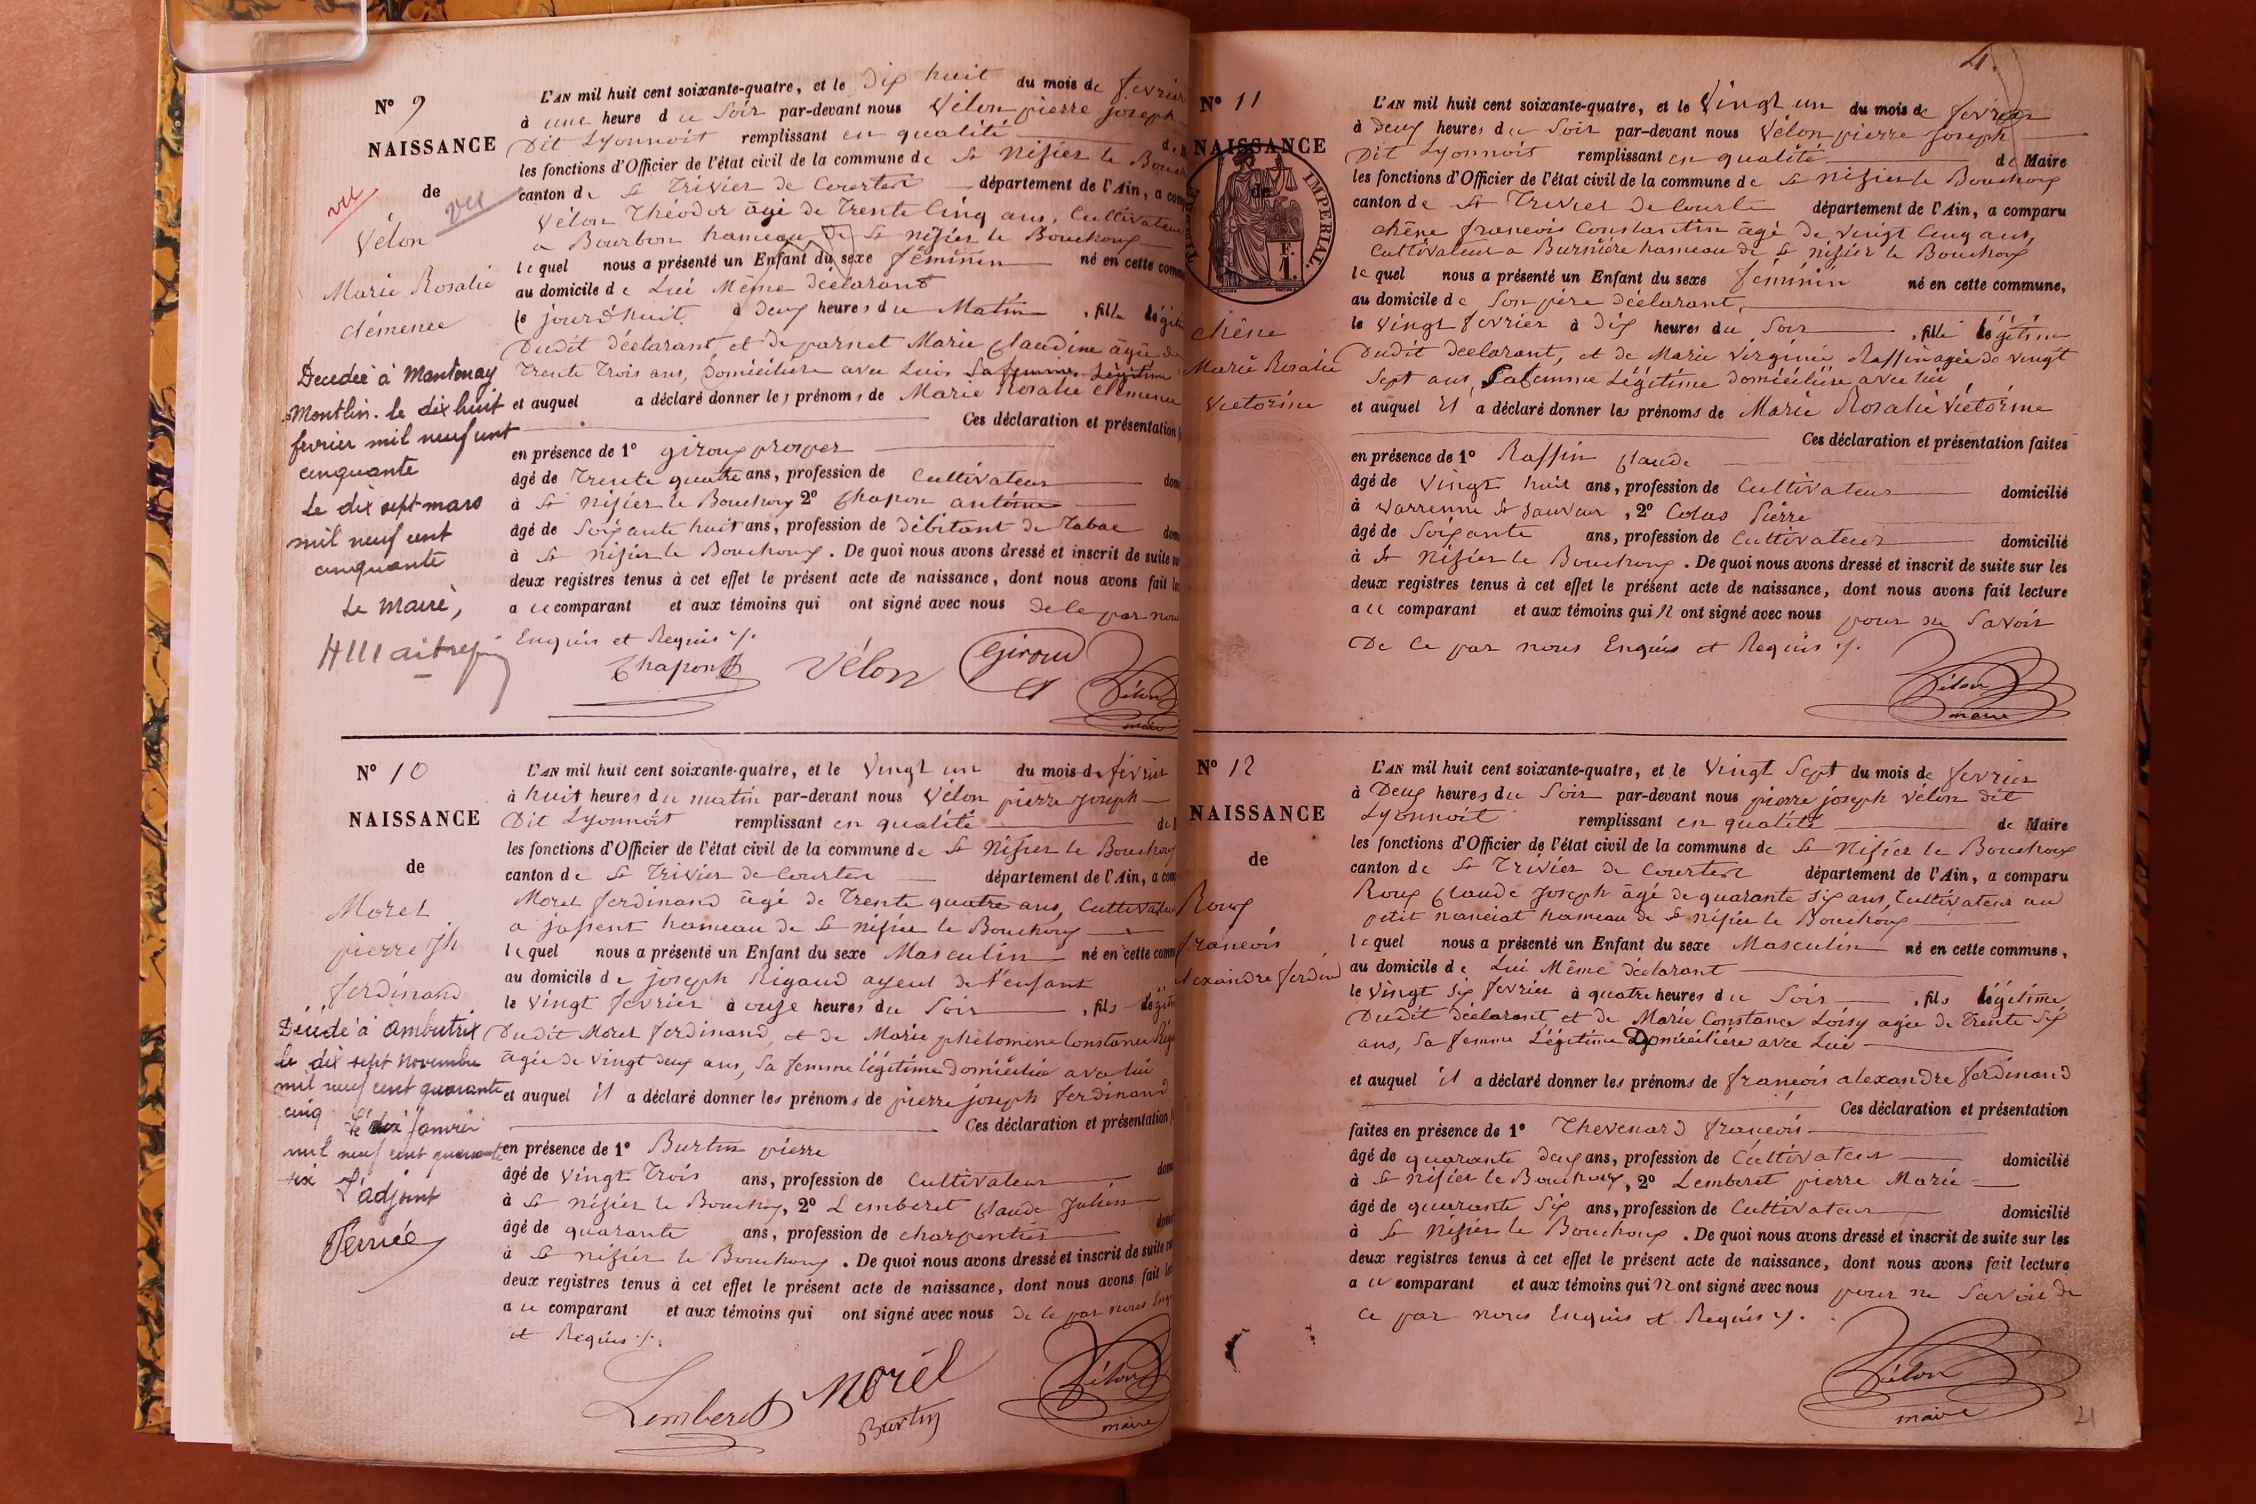 N° 9
NAISSANCE
de
vu
vu
Vélon
Marie Rosalie
clémence
Decedée à Mantenay
Montlin. le dix huit
fevrier mil neuf cent
cinquante
Le dix sept mars
mil neuf cent
cinquante
Le Maire,
L'AN mil huit cent soixante-quatre, et le Dix huit du mois de fevrier
à une heure du Soir par-devant nous Vélon pierre joseph
Dit Lyonnoit remplissant en qualité
les fonctions d'Officier de l'état civil de la commune de St Nizier le Bouch
canton de St Trivier de Courtes département de l'Ain, a com
Vélon Théodor âgé de Trente Cinq ans, Cultivateur
a Bourbon hameau de St nizier le Bouchoux
lequel nous a présenté un Enfant du sexe féminin né en cette comm
au domicile de Lui Même déclarant
le jourd'huit à deux heures du Matin, fille légiti
Dudit déclarant, et de parnet Marie Claudine âgée de
Trente Trois ans, Domiciliere avec Lui, Sa femme Légitime
et auquel a déclaré donner les prénoms de Marie Rosalie clémence
Ces déclaration et présentation
en présence de 1° giroux prosper
âgé de Trente quatre ans, profession de Cultivateur dom
à St nizier le Bouchoux 2° Chapon antoine
âgé de Soixante huit ans, profession de débitant de Tabac dom
à St nizier le Bouchoux. De quoi nous avons dressé et inscrit de suite su
deux registres tenus à cet effet le présent acte de naissance, dont nous avons fait le
a ce comparant et aux témoins qui ont signé avec nous de ce par nous
Enquis et Requis ./.
Chapon Vélon Giroud Vélon
maire
N° 10
NAISSANCE
de
Morel
pierre Jh
ferdinand
Décédé à Ambutrix
le dix sept novembre
mil neuf cent quarante
cinq
Le dix Janvier
mil neuf cent quarante
six L'adjoint
L'AN mil huit cent soixante-quatre, et le Vingt un du mois de février
à huit heures du matin par-devant nous Vélon pierre joseph
Dit Lyonnoit remplissant en qualité de
les fonctions d'Officier de l'état civil de la commune de St Nizier le Bouchoux
canton de St Trivier de Courtes département de l'Ain, a com
Morel ferdinand âgé de Trente quatre ans, Cultivateur
a jassent hameau de St nizier le Bouchoux
lequel nous a présenté un Enfant du sexe Masculin né en cette comm
au domicile de joseph Rigaud ayeul de l'enfant
le Vingt fevrier à onze heures du Soir, fils légiti
Dudit Morel ferdinand, et de Marie philomene Constance Rig
agée de vingt deux ans, Sa femme légitime domiciliée avec lui
et auquel il a déclaré donner les prénoms de pierre joseph ferdinand
Ces déclaration et présentation
en présence de 1° Burtin pierre
âgé de Vingt Trois ans, profession de Cultivateur dom
à St nizier le Bouchoux, 2° Lemberet Claude Julien
âgé de quarante ans, profession de charpentier dom
à St nizier le Bouchoux. De quoi nous avons dressé et inscrit de suite su
deux registres tenus à cet effet le présent acte de naissance, dont nous avons fait lec
a ce comparant et aux témoins qui ont signé avec nous de ce par nous Enq
et Requis ./.
Lemberet Morel Vélon
Burtin maire
4.
N° 11
NAISSANCE
de
IMPERIAL.
chêne
Marie Rosalie
Victorine
L'AN mil huit cent soixante-quatre, et le Vingt un du mois de fevrier
à Deux heures du Soir par-devant nous Vélon pierre joseph
Dit Lyonnoit remplissant en qualité de Maire
les fonctions d'Officier de l'état civil de la commune de St nizier le Bouchoux
canton de St Trivier de Courte département de l'Ain, a comparu
chêne francois Constantin âgé de vingt Cinq ans,
Cultivateur a Burniére hameau de St nizier le Bouchoux
lequel nous a présenté un Enfant du sexe féminin né en cette commune,
au domicile de Son père déclarant,
le Vingt fevrier à Dix heures du Soir, fille légitime
Dudit déclarant, et de Marie Virginie Raffin agée de vingt
Sept ans, Sa femme Légitime domiciliée avec lui
et auquel il a déclaré donner les prénoms de Marie Rosalie Victorine
Ces déclaration et présentation faites
en présence de 1° Raffin Claude
âgé de Vingt huit ans, profession de Cultivateur domicilié
à Varrenne St Sauveur, 2° Colas Pierre
âgé de Soixante ans, profession de Cultivateur domicilié
à St Nizier le Bouchoux. De quoi nous avons dressé et inscrit de suite sur les
deux registres tenus à cet effet le présent acte de naissance, dont nous avons fait lecture
a ce comparant et aux témoins qui n ont signé avec nous pour ne Savoir
De Ce par nous Enquis et Requis ./.
Vélon
maire
N° 12
NAISSANCE
de
Roux
francois
alexandre ferdin
L'AN mil huit cent soixante-quatre, et le Vingt Sept du mois de fevrier
à Deux heures du Soir par-devant nous pierre joseph Vélon dit
Lyonnoit remplissant en qualité de Maire
les fonctions d'Officier de l'état civil de la commune de St Nizier le Bouchoux
canton de St Trivier de Courtes département de l'Ain, a comparu
Roux Claude Joseph âgé de quarante Six ans, Cultivateur au
petit nanciat hameau de St nizier le Bouchoux
lequel nous a présenté un Enfant du sexe Masculin né en cette commune,
au domicile de Lui Même déclarant
le Vingt Six fevrier à quatre heures du Soir, fils légitime
Dudit déclarant et de Marie Constance Loisy agée de Trente Six
ans, Sa femme Légitime Domiciliére avec Lui
et auquel il a déclaré donner les prénoms de françois alexandre ferdinand
Ces déclaration et présentation
faites en présence de 1° Thevenard francois
âgé de quarante deux ans, profession de Cultivateur domicilié
à St nizier le Bouchoux, 2° Lemberet pierre Marie
âgé de quarante Six ans, profession de Cultivateur domicilié
à St Nizier le Bouchoux. De quoi nous avons dressé et inscrit de suite sur les
deux registres tenus à cet effet le présent acte de naissance, dont nous avons fait lecture
a ce comparant et aux témoins qui n ont signé avec nous pour ne Savoir de
Ce par nous Enquis et Requis ./.
Vélon
maire
21